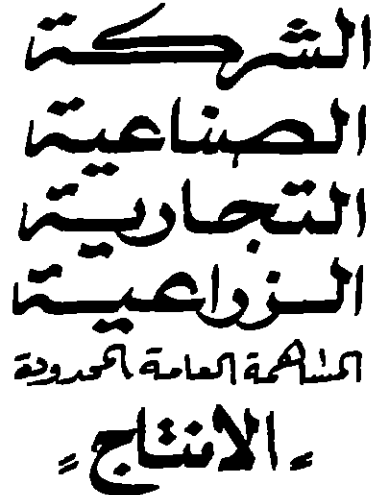 الشركة
الصناعية
التجارية
الزراعية
المساهمة العامة المحدودة
= الانتاج =